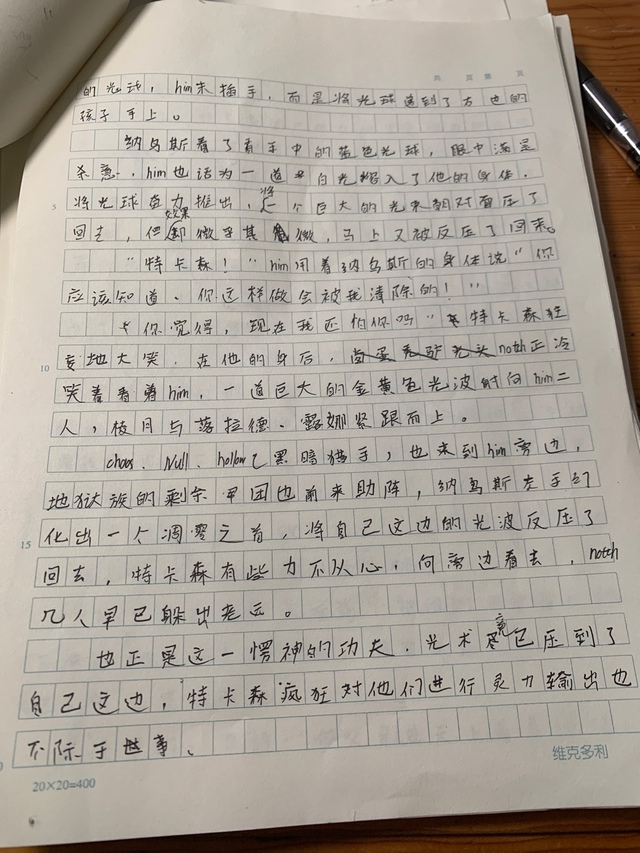 共 页 第 页
的光球，him未插手，而是将光球送到了右边的
孩子手上。
纳乌斯看了看手中的蓝色光球，眼中满是
杀意，him也话为一道白光揺入了他的身体，
将光球奋力推出，将一个巨大的光束朝对面压了
回去，但效果却微乎其微，马上又被反压了回来。
5
"特卡森！"him用着纳乌斯的身体说"你
应该知道、你这样做会被我清除的！"
"你觉得，现在我还怕你吗"特卡森狂
妄地大笑，在他的身后，noth正冷
10
笑着看着him，一道巨大的金黄色光波射向him二
人，枝月与落拉德、露娜紧跟而上。
chaos、Null、hollow乙黑暗猎手，也来到him旁边，
地狱族的剩余军团也前来助阵，纳乌斯左手幻
化出一个凋零之首，将自己这边的光波反压了
15
回去，特卡森有些力不从心，向旁边看去，notch
几人早已躲出老远。
也正是这一愣神的功夫，光术竟已压到了
自己这边，特卡森疯狂对他们进行灵力输出也
不际于世事、
20×20=400
维克多利